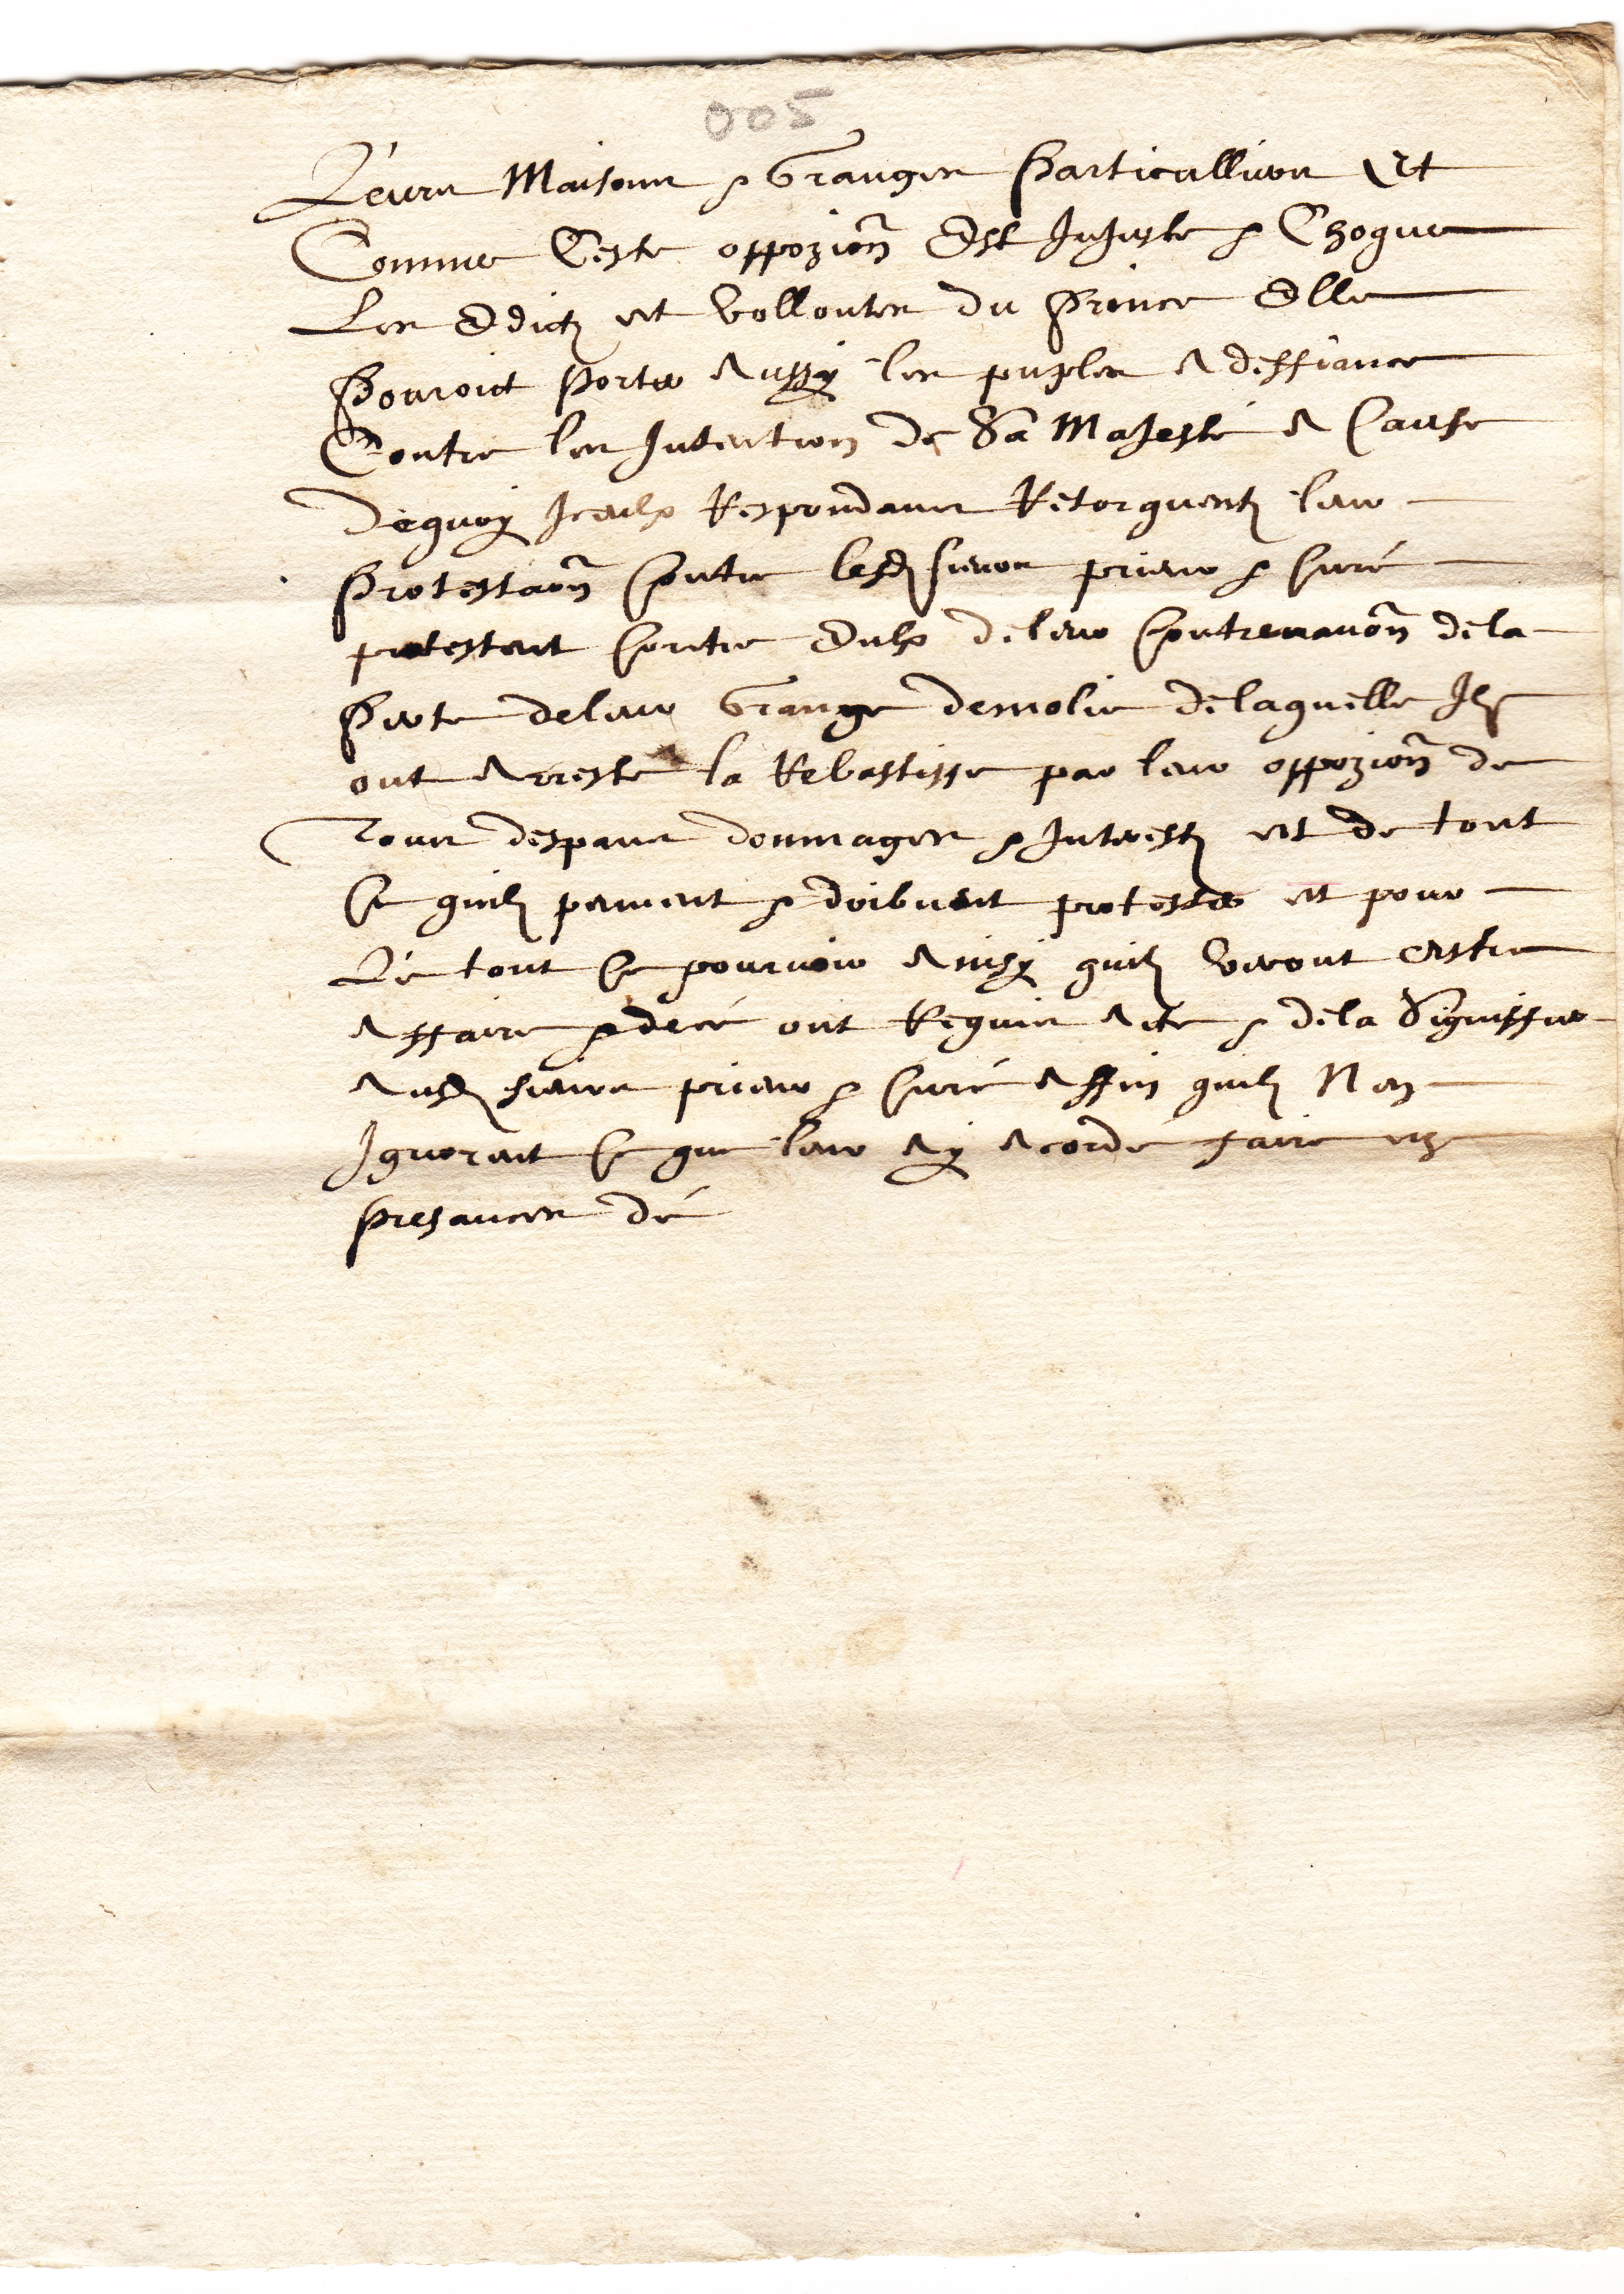 005
Leurs Maisons & Granges Particullieres Et
Comme Ceste oppozion Est Injuste & Choque
Les Edictz et Vollontes du Prince Elle
Pouroict Porter Aussy les puples A deffiance
Contre les Intention de Sa Majesté A Cause
dequoy Iceulx Respondans Retorquentz leur
Protestaon Contre lesd sieurs prieur & Curé
protestent Contre Eulx de leur Contrevanon dela
Perte de leur Grange demolie de laquelle Ilz
ont Arresté la Rebastisse par leur oppozion de
Tous despans dommages & Interestz et de tout
Ce quilz peuvent & doibvent protester et pour
Le tout Ce pourvoir Ainsy quilz veront Estre
Affaire & de cé ont Requis Acte & de la Signiffier
Ausd sieurs prieur & Curé Affin quilz Nen
Ignorent Ce que leur Ay Acordé faire en
Presances dé